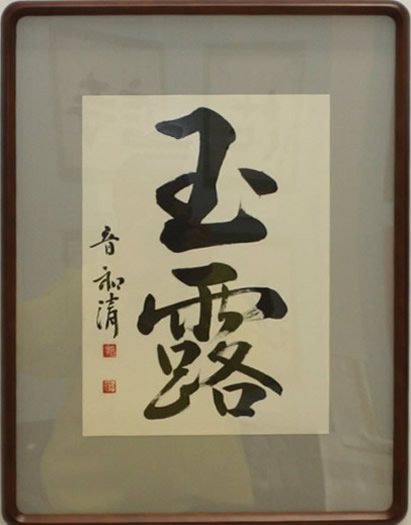 玉露
音和清